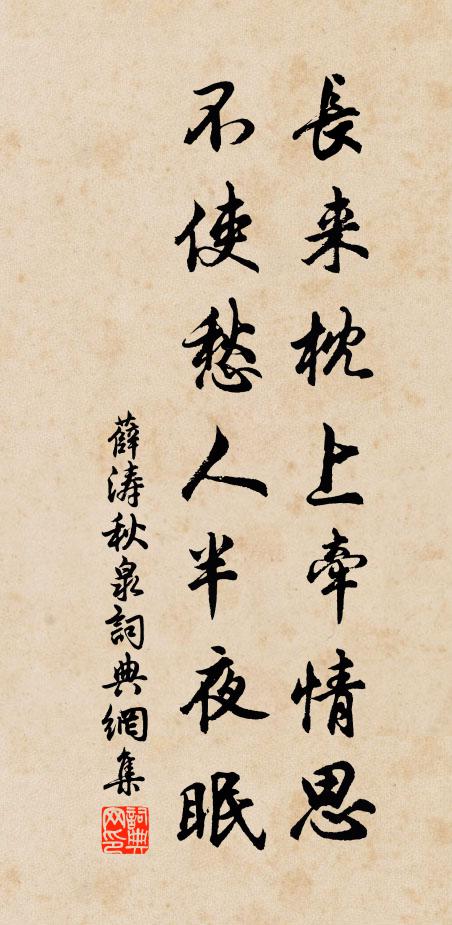 長来枕上牽情思
不使愁人半夜眠
薛濤秋泉詞典網集
詞典网印